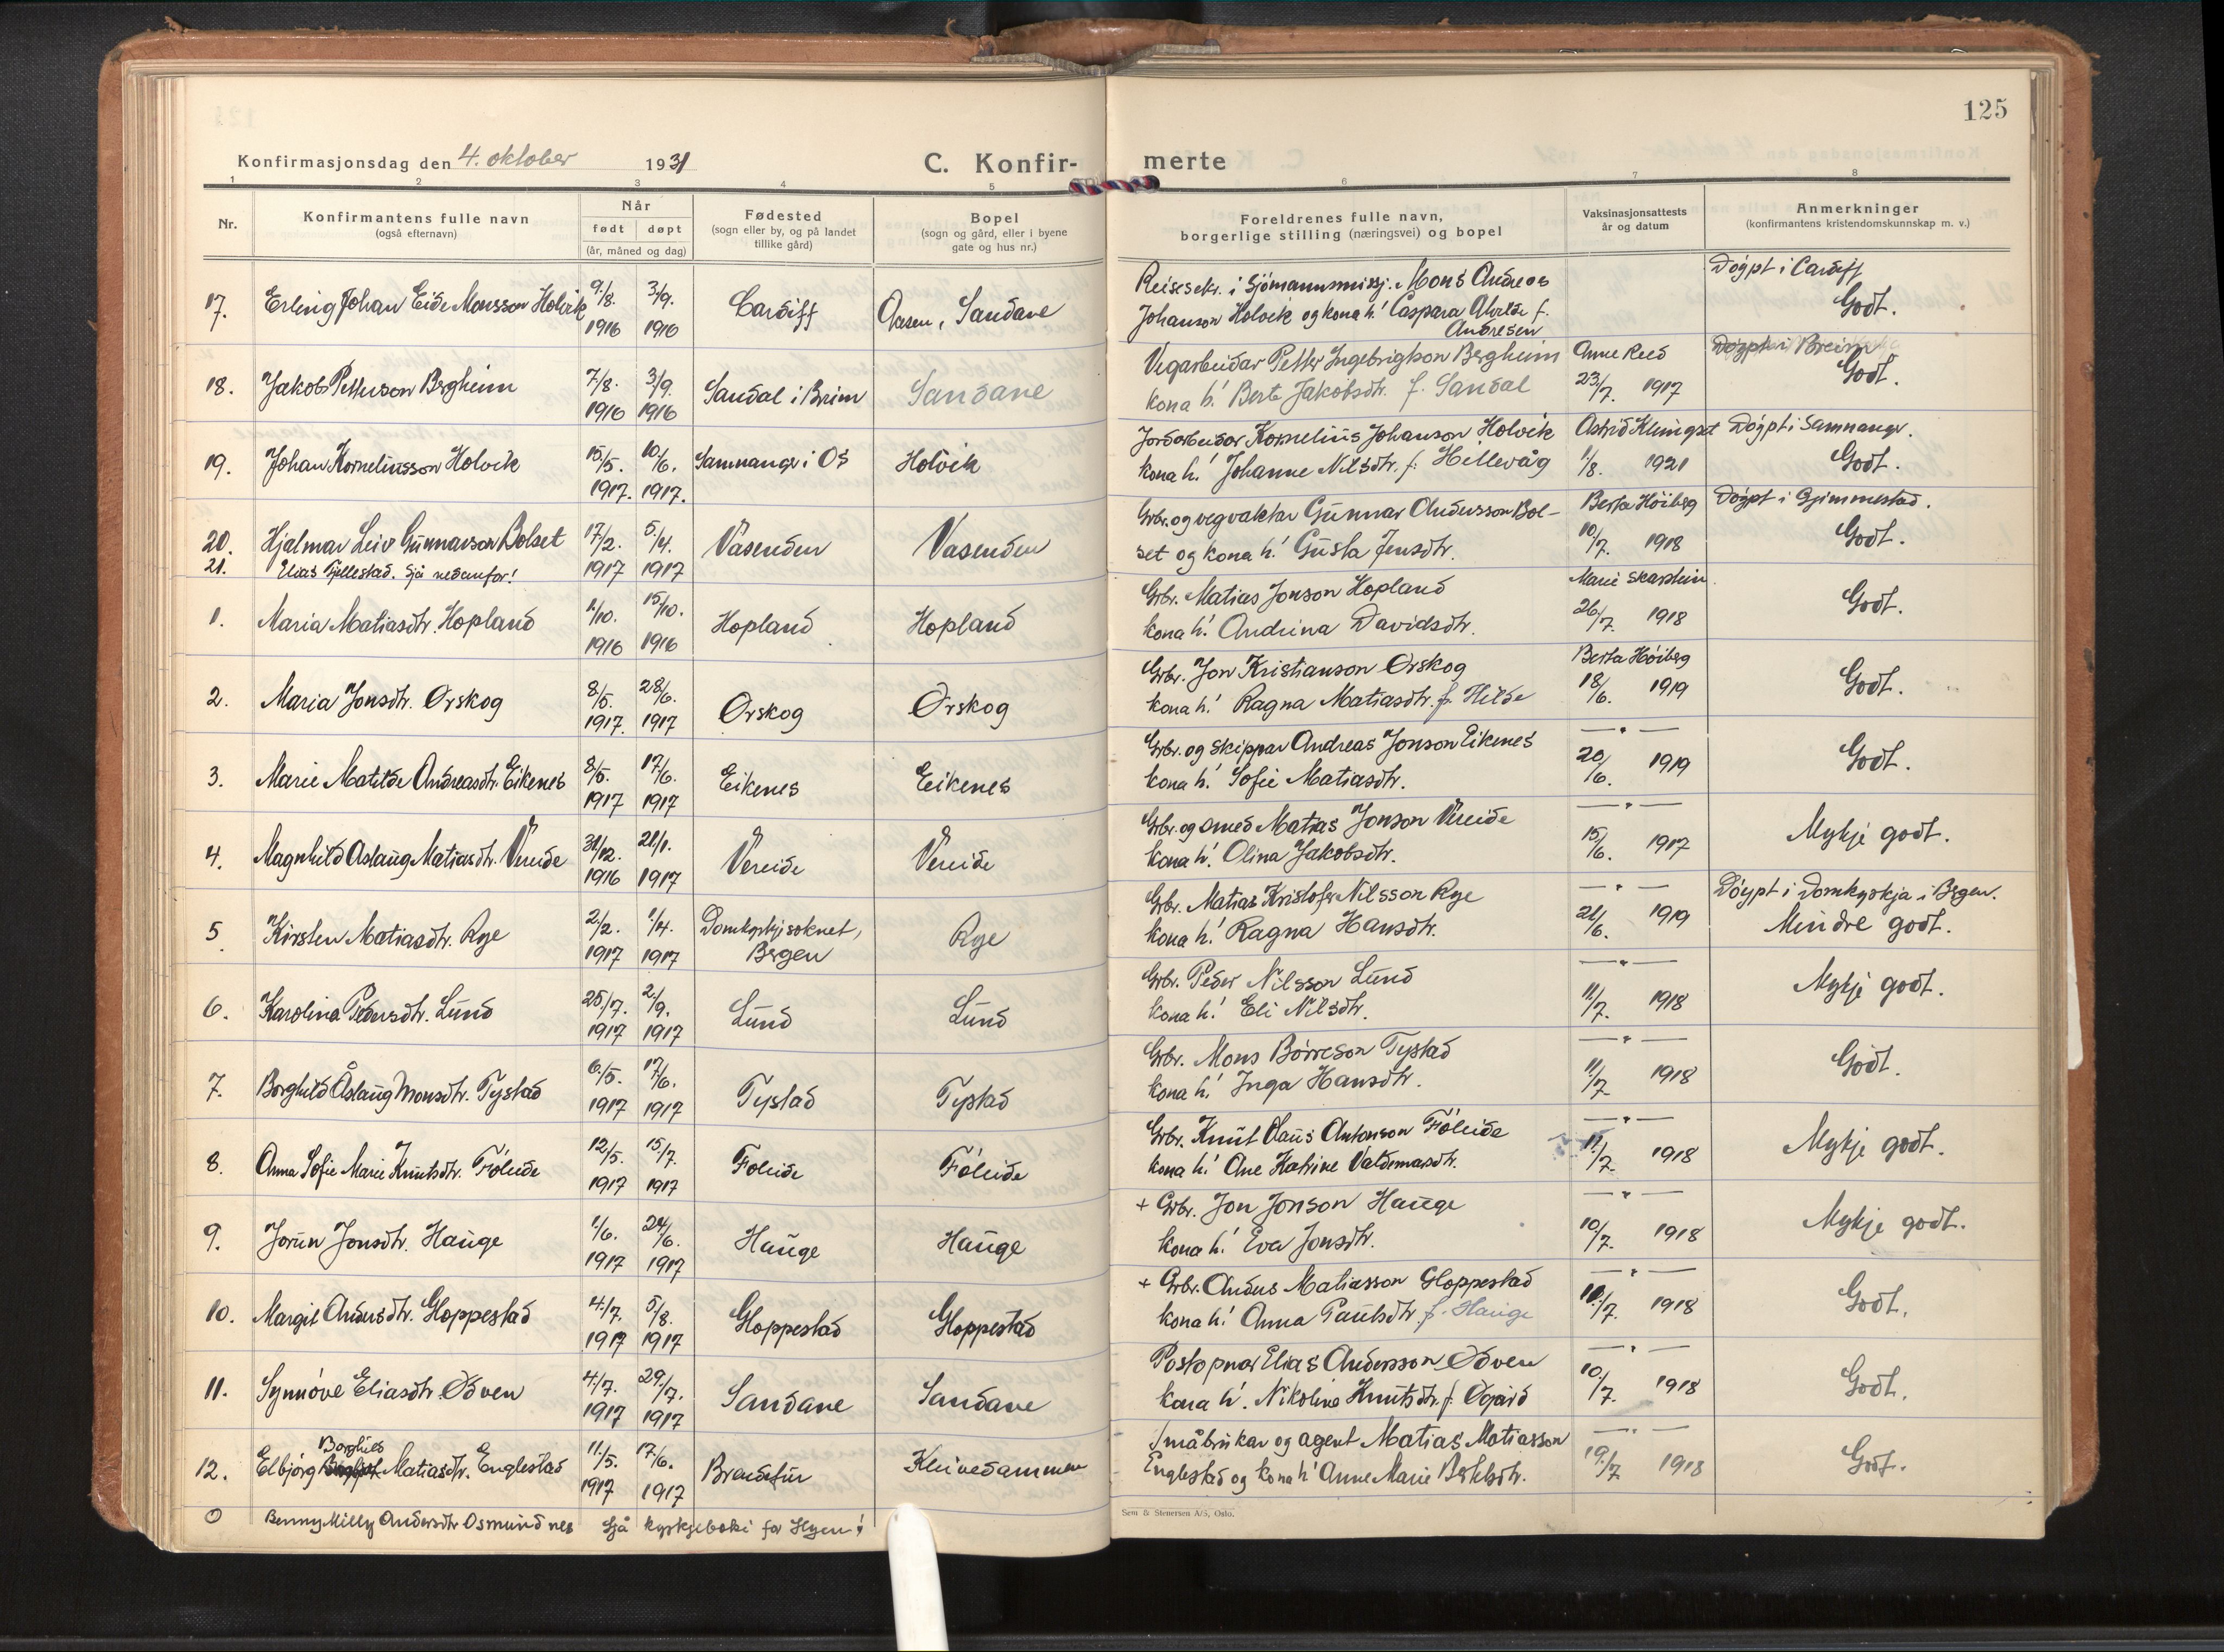 125
Konfirmasjonsdag den 4. oktober 1931
C. Konfir-
merte
1 2 3 4 5 6 7 8
Nr.
Konfirmantens fulle navn
(også efternavn)
Når
født døpt
(år, måned og dag)
Fødested
(sogn eller by, og på landet
tillike gård)
Bopel
(sogn og gård, eller i byene
gate og hus nr.)
Foreldrenes fulle navn,
borgerlige stilling (næringsvei) og bopel
Vaksinasjonsattests
år og datum
Anmerkninger
(konfirmantens kristendomskunnskap m. v.)
17. Erling Johan Eide Monsson Holvik 9/8. 1916 3/9. 1916 Cardiff Aasen, Sandane
Reisesekr. i Sjömannsmissj. Mons Andreas
Johanson Holvik og kona h! Caspara Alvilde f.
Andresen
Döypt i Cardiff
Godt.
18. Jakob Petterson Bergheim 7/8. 1916 3/9. 1916 Sandal i Breim Sandane
Vegarbeidar Petter Ingebrigtson Bergheim
kona h! Berte Jakobsdtr. f. Sandal
Anne Reed
23/7. 1917
Döypt i Breim
Godt.
19. Johan Korneliusson Holvik 15/5. 1917. 10/6. 1917. Samnanger i Os Holvik
Jordarbeidar Kornelius Johanson Holvik
kona h! Johanne Nilsdtr. f. Hillevåg
Astrid Klingset
1/8. 1921
Döypt i Samnanger.
Godt.
20. Hjalmar Leiv Gunnarson Bolset 17/2. 1917 5/4. 1917 Vasenden Vasenden
Grbr. og vegvaktar Gunnar Andersson Bol-
set og kona h! Gusta Jensdtr.
Berta Höiberg
10/7. 1918
Döypt i Gimmestad.
Godt.
21. Elias Fjellestad. Sjå nedanfor!
1. Maria Matiasdtr. Hopland 1/10. 1916 15/10. 1916 Hopland Hopland
Grbr. Matias Jonson Hopland
kona h! Andrina Davidsdtr.
Marie Skarstein
26/7. 1918
Godt.
2. Maria Jonsdtr. Orskog 8/5. 1917. 28/6. 1917 Orskog Orskog
Grbr. Jon Kristianson Orskog
kona h! Ragna Matiasdtr. f. Hilde
Berta Höiberg
18/6. 1919
Godt.
3. Marie Matilde Andreasdtr. Eikenes 8/5. 1917 17/6. 1917 Eikenes Eikenes
Grbr. og Skippar Andreas Jonson Eikenes
kona h! Sofie Matiasdtr.
— " —
20/6. 1919
Godt.
4. Magnhild Aslaug Matiasdtr. Vereide 31/12. 1916 21/1. 1917 Vereide Vereide
Grbr. og smed Matias Jonson Vereide
kona h! Olina Jakobsdtr.
— " —
15/6. 1917
Mykje godt.
5. Kirsten Matiasdtr. Rye 2/2. 1917 1/4. 1917 Domkyrkjisoknet, Bergen Rye
Grbr. Matias Kristofer Nilsson Rye
kona h! Ragna Hansdtr.
— " —
21/6. 1919
Döypt i Domkyrkja i Bergen.
Mindre godt.
6. Karolina Pedersdtr. Lund 25/7. 1917 2/9. 1917 Lund Lund
Grbr. Peder Nilsson Lund
kona h! Eli Nilsdtr.
— " —
11/7. 1918
Mykje godt.
7. Borghild Åslaug Monsdtr. Tystad 6/5. 1917 17/6. 1917 Tystad Tystad
Grbr. Mons Börreson Tystad
kona h! Inga Hansdtr.
— " —
11/7. 1918
Godt.
8. Anna Sofie Marie Knutsdtr. Föleide 12/5. 1917 15/7. 1917 Föleide Föleide
Grbr. Knut Olaus Antonson Föleide
kona h! Ane Katrine Valdemarsdtr.
— " —
11/7. 1918
Mykje godt.
9. Jorun Jonsdtr. Hauge 1/6. 1917 24/6. 1917 Hauge Hauge
+ Grbr. Jon Jonson Hauge
kona h! Eva Jonsdtr.
— " —
10/7. 1918
Mykje godt.
10. Margit Andersdtr. Gloppestad 4/7. 1917 5/8. 1917 Gloppestad Gloppestad
+ Grbr. Anders Matiasson Gloppestad
kona h! Anna Paulsdtr f. Hauge
— " —
10/7. 1918
Godt.
11. Synnöve Eliasdtr.Ödven 4/7. 1917 29/7. 1917 Sandane Sandane
Postopnar Elias AnderssonÖdven
kona h!. Nikoline Knutsdtr. f. Osgård
— " —
10/7. 1918
Godt.
12. Elbjörg Borghild Matiasdtr. Englestad 11/5. 1917 17/6. 1917 Brandsfur Kleivedammen
Småbrukar og agent Matias Matiasson
Englestad og kona h! Anne Marie Bertelsdtr.
— " —
19/7 1918
Godt.
0 Benny Milly Andersdtr Osmundnes Sjå kyrkjeboki for Hyen!
Sem & Stenersen A/S, Oslo.